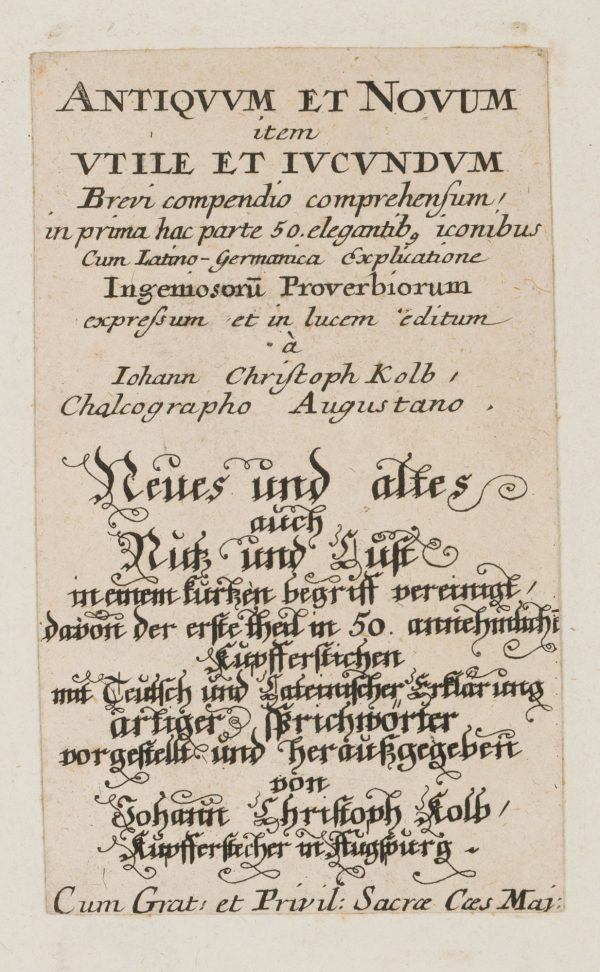 ANTIQVVM ET NOVUM
item
VTILE ET IVCVNDVM
Brevi compendio comprehensum,
in prima hac parte 50. elegantib9 iconibus
Cum Latino-Germanica Explicatione
Ingeniosorū Proverbiorum
expressum et in lucem editum
à
Iohann Christoph Kolb,
Chalcographo Augustano.
Neues und altes
auch
Nutz und Lust
in einem kurtzen begriff vereinigt,
davon der erste theil in 50. annehmlichē
Kupfferstichen
mit Teutsch und Lateinischer Erklärung
artiger sprichwörter
vorgestellt und heraußgegeben
von
Johann Christoph Kolb,
Kupfferstecher in Augspurg.
Cum Grat: et Privil: Sacræ Cæs Maj: